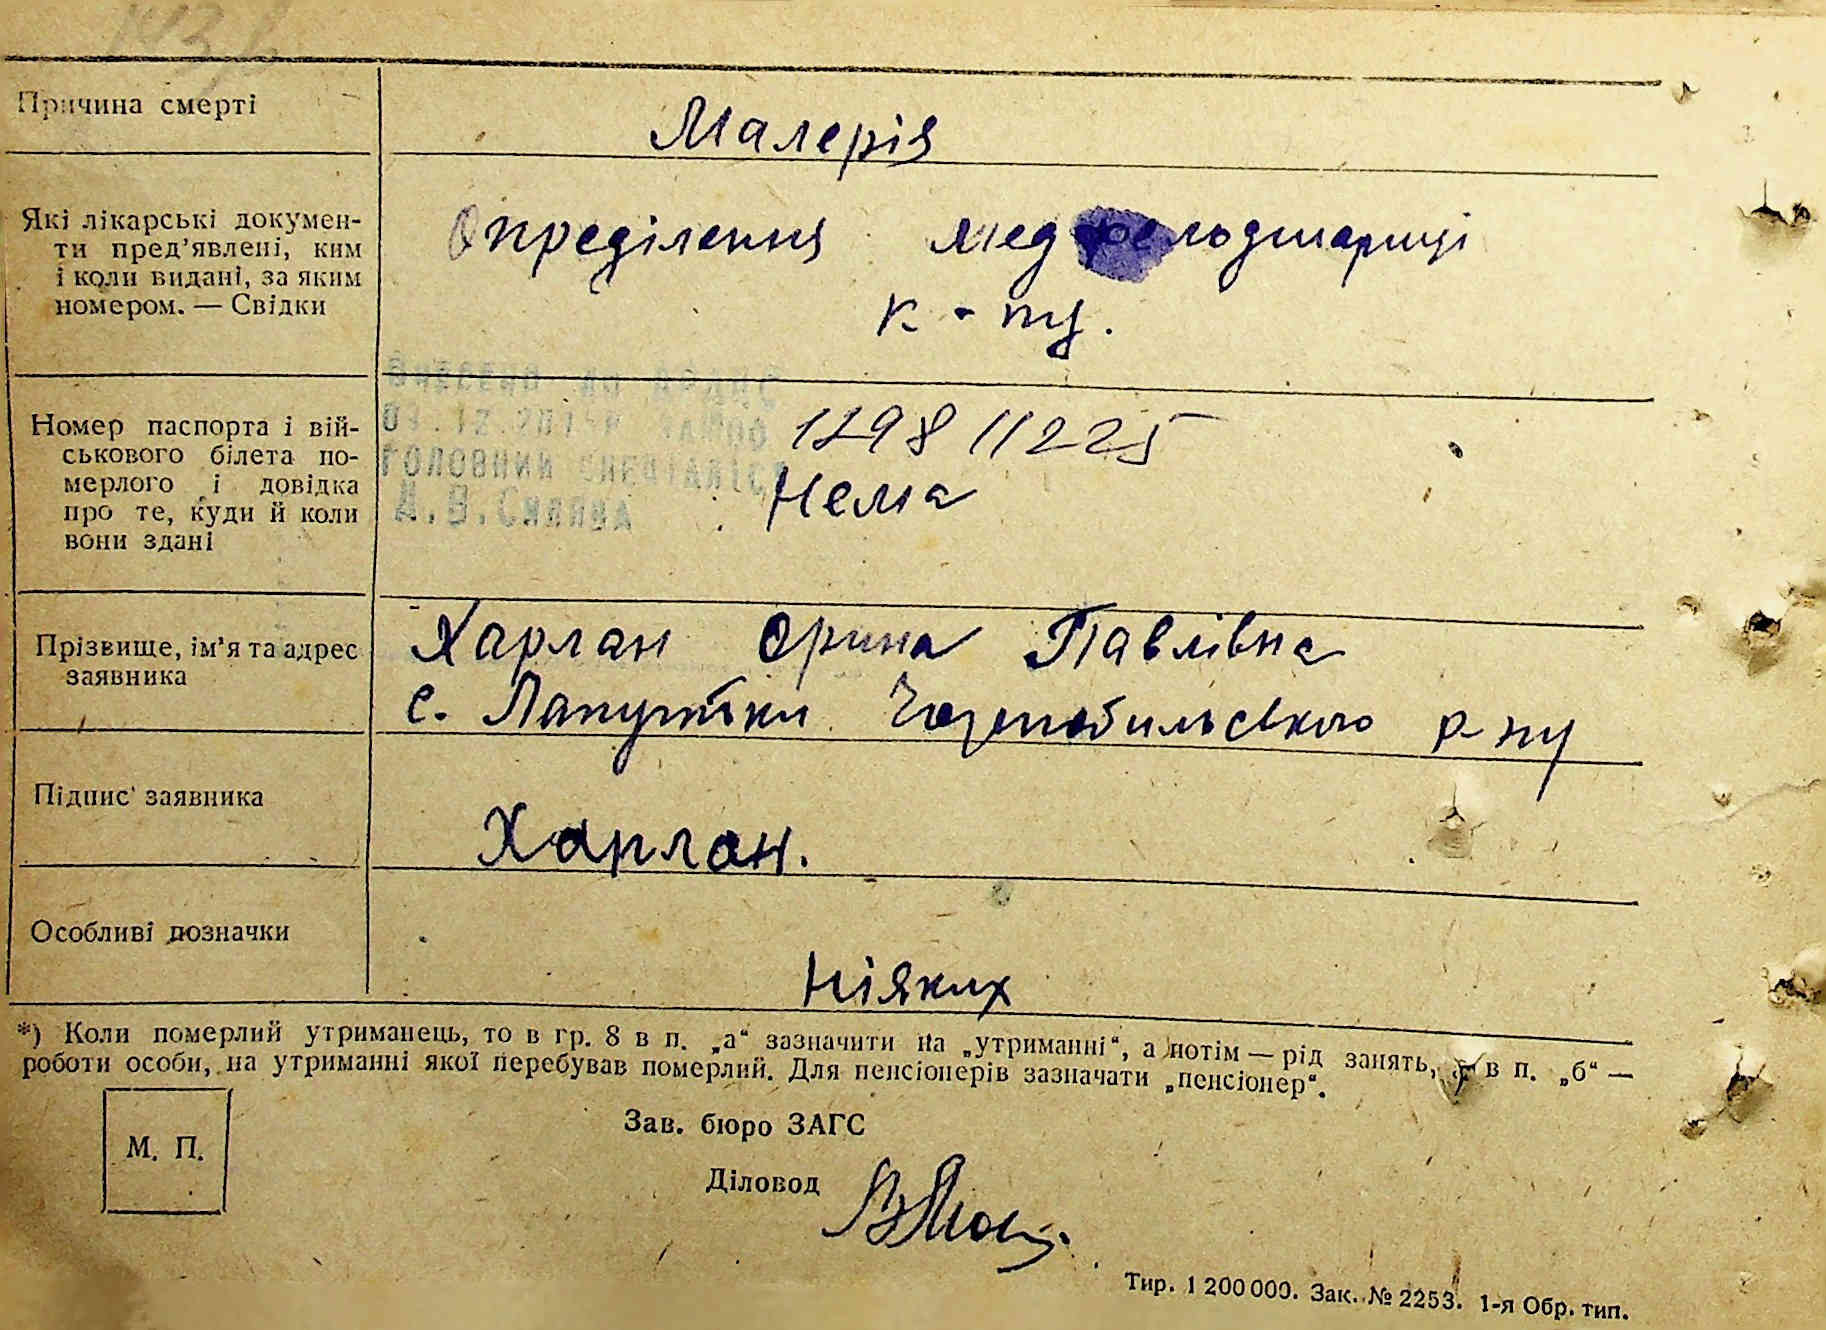 Причина смерті
Малерія
Які лікарські докумен-
ти пред'явлені, ким
і коли видані, за яким
номером. — Свідки
Опреділення мед фельдшариці
к-пу.
Номер паспорта і вій-
ськового білета по-
мерлого і довідка
про те, куди й коли
вони здані
Внесено до ДРАЦС
ГОЛОВНИЙ СПЕЦІАЛІСТ
129811225
Нема
Прізвище, ім'я та адрес
заявника
Харлан Орина Павлівна
с. Лапутьки Чорнобильського р-ну
Підпис заявника
Харлан.
Особливі позначки
Ніяких
*) Коли померлий утриманець, то в гр. 8 в п. „а“ зазначити на „утриманні“, а потім — рід занять, а в п. „б“ —
роботи особи, на утриманні якої перебував померлий. Для пенсіонерів зазначати „пенсіонер“.
М. П.
Зав. бюро ЗАГС
Діловод
Тир. 1 200 000. Зак. № 2253. 1-я Обр. тип.